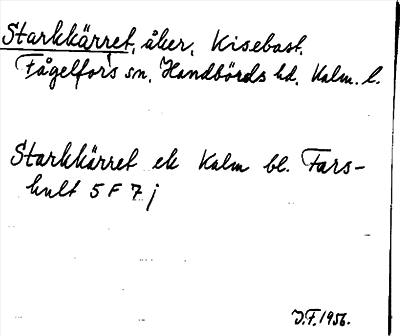 Starkkärret, åker, Kisebast.
Fågelfors sn, Handbörds hd, Kalm. l.
Starkkärret ek Kalm bl. Fars-
hult 5 F 7 j
J.F. 1956.